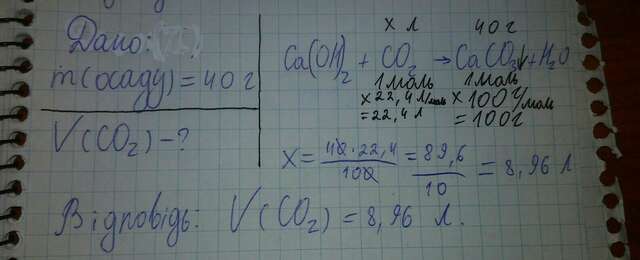 Дано:
m(осаду) = 40 г
V(CO₂) - ?
x л 40 г
Ca(OH)₂ + CO₂ → CaCO₃↓ + H₂O
1 моль 1 моль
x 22,4 л/моль x 100 г/моль
= 22,4 л = 100 г
X = 40 · 22,4 / 100 = 89,6 / 10 = 8,96 л
Відповідь: V(CO₂) = 8,96 л.